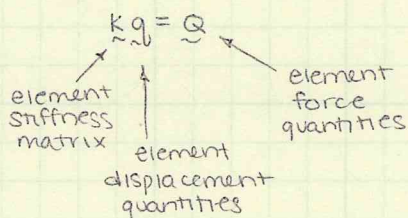 k q = Q
element
stiffness
matrix
element
displacement
quantities
element
force
quantities